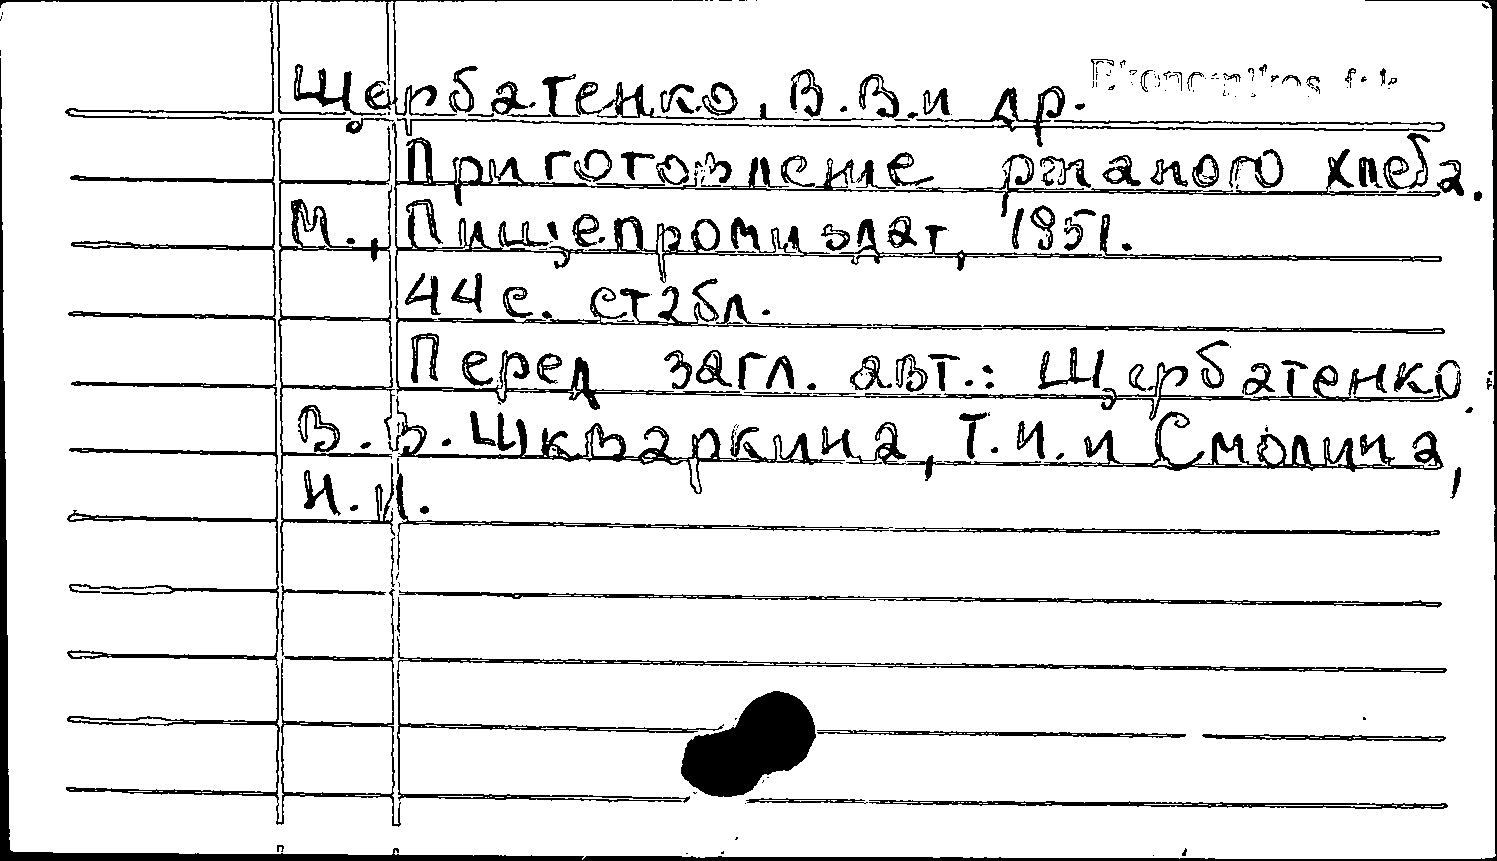 Щербатенко, В.В. и др. Ekonomikos fak.
Приготовление ржаного хлеба.
М., Пищепромиздат, 1951.
44 с. с табл.
Перед загл. авт.: Щербатенко,
В.В. Шкваркина, Т.И. и Смолина,
Н.И.